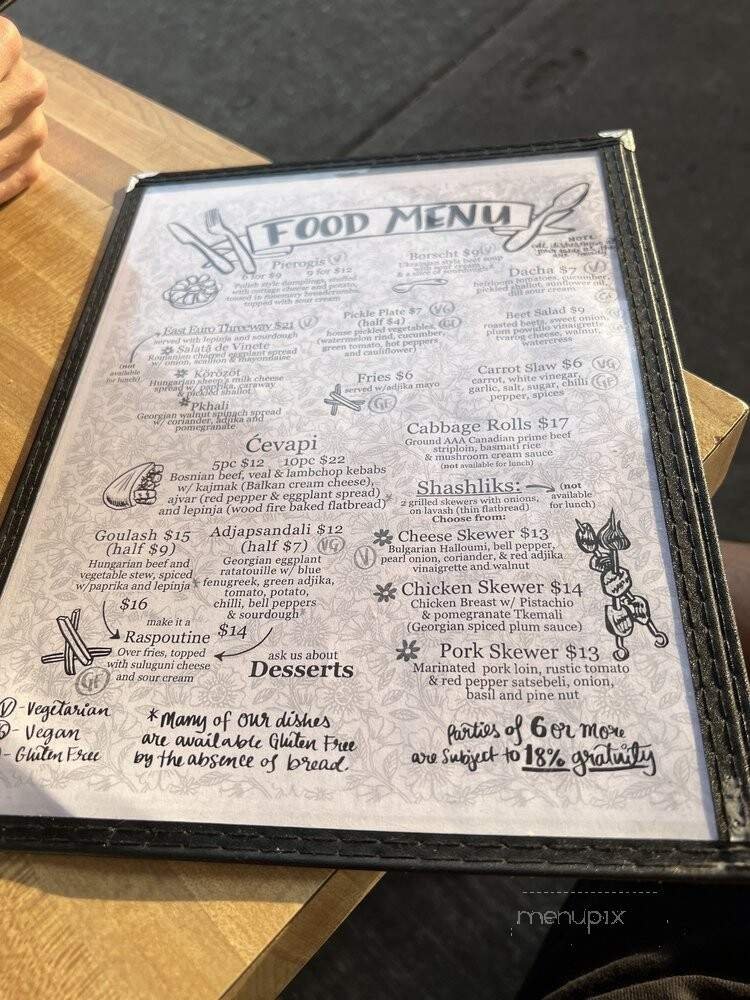 FOOD MENU
Pierogis V
6 for $9 9 for $12
Polish style dumplings, stuffed
with cottage cheese and potato,
tossed in rosemary breadcrumbs
topped with sour cream
Borscht $9
style beet soup
with sour cream
NOTE
Dacha $7 V
heirloom tomatoes, cucumber,
pickled shallot, sunflower oil,
dill sour cream
GF
East Euro Threeway $21 V
served with lepinja and sourdough
(not
available
for lunch)
* Salată de Vinete
Romanian charred eggplant spread
w/ onion, scallion & mayonnaise
* Körözöt
Hungarian sheep's milk cheese
spread w/ paprika, caraway
& pickled shallot
* Pkhali
Georgian walnut spinach spread
w/ coriander, adjika and
pomegranate
Pickle Plate $7 VG
(half $4) GF
house pickled vegetables,
(watermelon rind, cucumber,
green tomato, hot peppers
and cauliflower)
Beet Salad $9
roasted beets, sweet onion,
plum povidlo vinaigrette
tvarog cheese, walnut,
watercress
Fries $6
served w/adjika mayo
GF
Carrot Slaw $6 VG
carrot, white vinegar,
garlic, salt, sugar, chilli GF
pepper, spices
Ćevapi
5pc $12 10pc $22
Bosnian beef, veal & lambchop kebabs
w/ kajmak (Balkan cream cheese),
ajvar (red pepper & eggplant spread)
and lepinja (wood fire baked flatbread)*
Cabbage Rolls $17
Ground AAA Canadian prime beef
striploin, basmati rice
& mushroom cream sauce
(not available for lunch)
Shashliks:
(not
available
for lunch)
2 grilled skewers with onions,
on lavash (thin flatbread)
Choose from:
Goulash $15
(half $9)
Hungarian beef and
vegetable stew, spiced
w/paprika and lepinja *
Adjapsandali $12
(half $7) VG
Georgian eggplant
ratatouille w/ blue
fenugreek, green adjika,
tomato, potato,
chilli, bell peppers
& sourdough *
V
* Cheese Skewer $13
Bulgarian Halloumi, bell pepper,
pearl onion, coriander, & red adjika
vinaigrette and walnut
* Chicken Skewer $14
Chicken Breast w/ Pistachio
& pomegranate Tkemali
(Georgian spiced plum sauce)
* Pork Skewer $13
Marinated pork loin, rustic tomato
& red pepper satsebeli, onion,
basil and pine nut
$16
make it a
Raspoutine
$14
Over fries, topped
with suluguni cheese
and sour cream
GF
ask us about
Desserts
V - Vegetarian
G - Vegan
- Gluten Free
*Many of our dishes
are available Gluten Free
by the absence of bread.
Parties of 6 or more
are subject to 18% gratuity
menupix